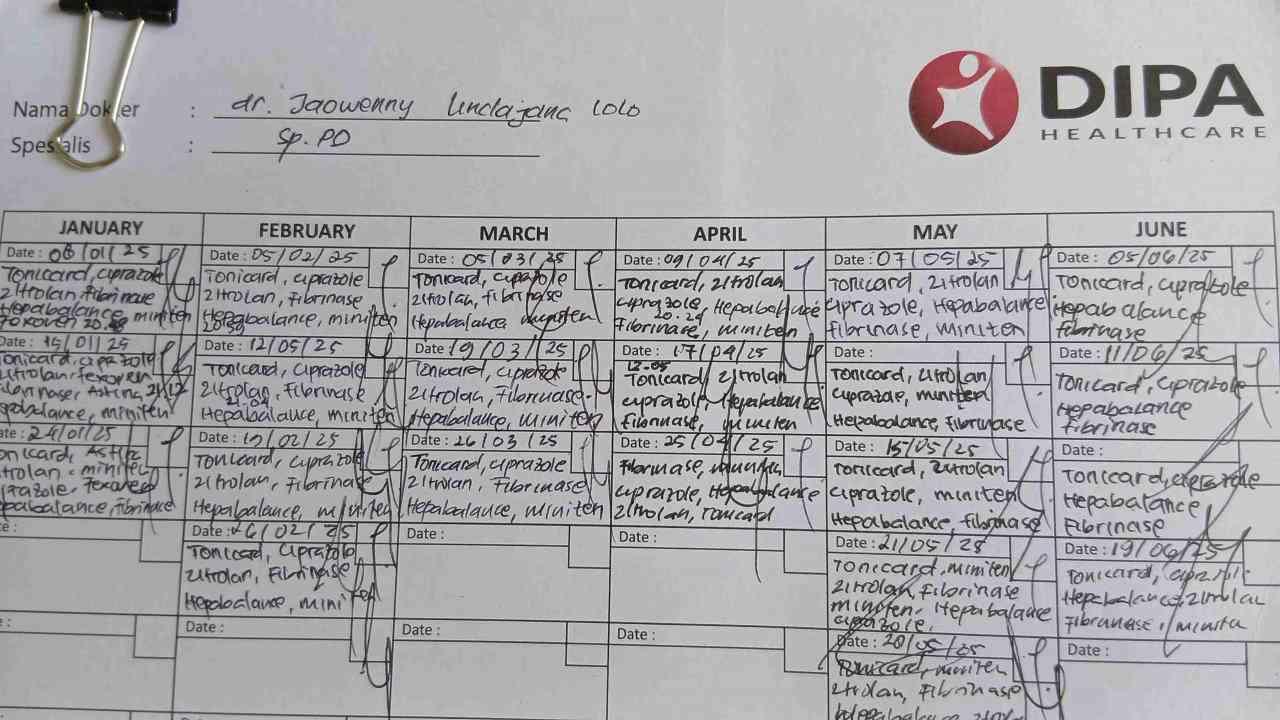 DIPA
HEALTHCARE
Nama Dokter : dr. Jaowenny
Spesialis : Sp. PD
JANUARY
Date : 06/01/25
Tonicard, ciprazole
zitrolan, Fibrinase
Hepabalance, miniten
15/01/25
Tonicard, ciprazole
zitrolan, Fexoven
Hepabalance, miniten
Date : 24/01/25
Tonicard,
zitrolan, miniten
ciprazole, Fexoven
Hepabalance, Fibrinase
FEBRUARY
Date : 05/02/25
Tonicard, ciprazole
zitrolan, Fibrinase
Hepabalance, miniten
Date : 12/05/25
Tonicard, ciprazole
zitrolan, Fibrinase
Hepabalance, miniten
Date : 19/02/25
Tonicard, ciprazole
zitrolan, Fibrinase
Hepabalance, miniten
Date : 26/02/25
Tonicard, ciprazole
zitrolan, Fibrinase
Hepabalance, miniten
Date :
MARCH
Date : 05/03/25
Tonicard, ciprazole
zitrolan, fibrinase
Hepabalance miniten
Date : 19/03/25
Tonicard, ciprazole
zitrolan, Fibrinase
Hepabalance, miniten
Date : 26/03/25
Tonicard, ciprazole
zitrolan, Fibrinase
Hepabalance, miniten
Date :
Date :
APRIL
Date : 09/04/25
Tonicard, zitrolan
ciprazole, Hepabalance
20.25
Fibrinase, miniten
Date : 17/04/25
Tonicard, zitrolan
ciprazole, Hepabalance
Fibrinase, miniten
Date : 25/04/25
Fibrinase, miniten
ciprazole, Hepabalance
zitrolan, Tonicard
Date :
Date :
MAY
Date : 07/05/25
Tonicard, zitrolan
ciprazole, Hepabalance
fibrinase, miniten
Date :
Tonicard, zitrolan
ciprazole, miniten
Hepabalance, fibrinase
Date : 15/05/25
Tonicard, zitrolan
ciprazole, miniten
Hepabalance, fibrinase
Date : 21/05/25
Tonicard, miniten
zitrolan, fibrinase
miniten. Hepabalance
ciprazole.
Date : 28/05/25
Tonicard, miniten
zitrolan, Fibrinase
Hepabalance,
JUNE
Date : 05/06/25
Tonicard, ciprazole
Hepabalance
fibrinase
Date : 11/06/25
Tonicard, ciprazole
Hepabalance
fibrinase
Date :
Tonicard, ciprazole
Hepabalance
Fibrinase
Date : 19/06/25
Tonicard,
Hepabalance, zitrolan
Fibrinase,
Date :